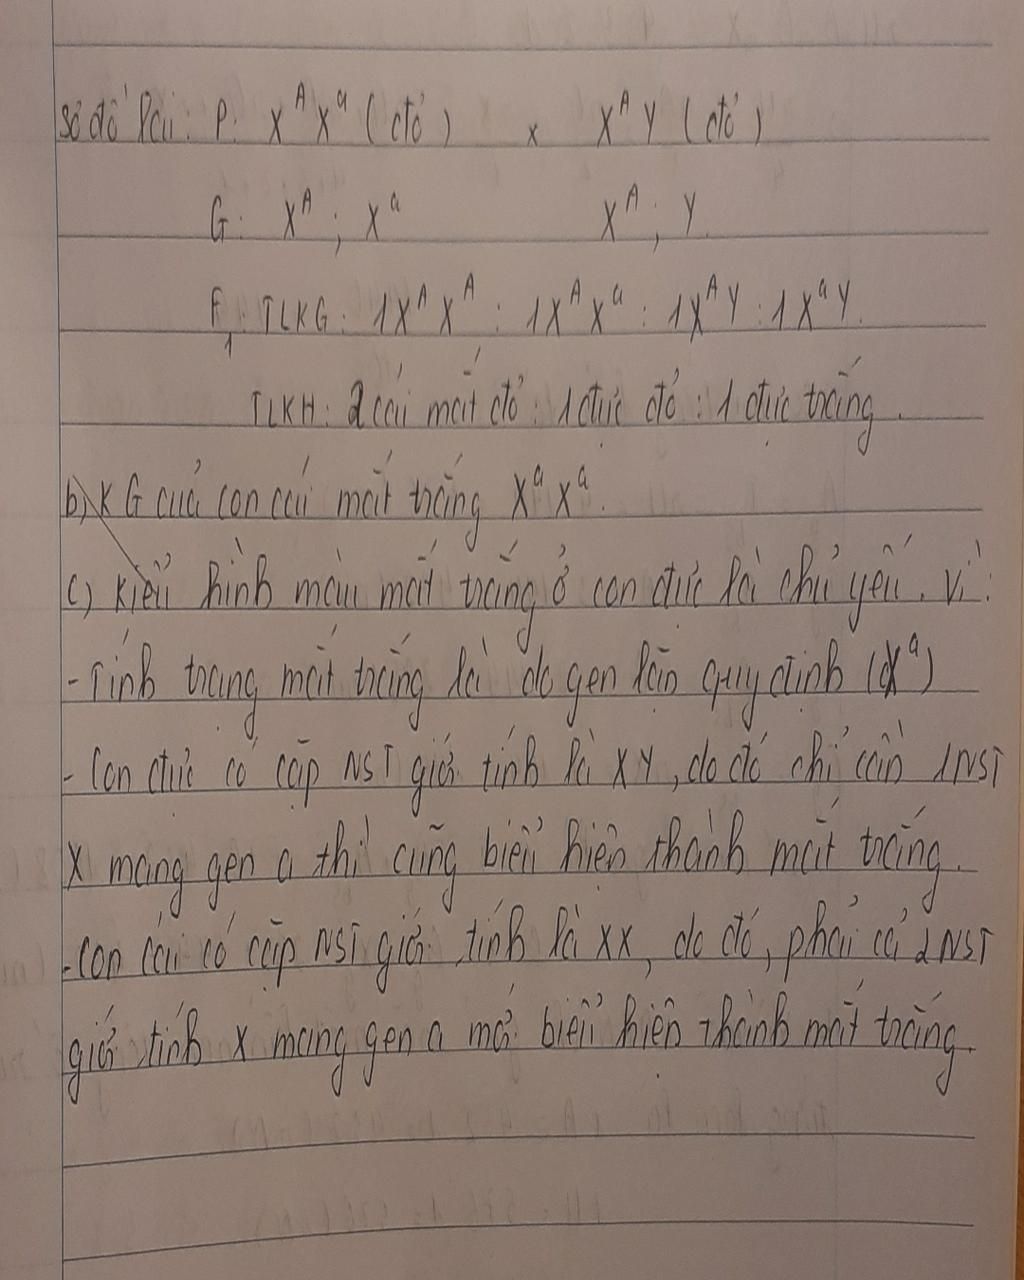 Sơ đồ lai: P: X^A X^a (đỏ) x X^A Y (đỏ)
G: X^A ; X^a X^A ; Y.
F₁: TLKG: 1X^A X^A : 1X^A X^a : 1X^A Y : 1X^a Y.
TLKH: 2 cái mắt đỏ : 1 đực đỏ : 1 đực trắng.
b) KG của con cái mắt trắng X^a X^a.
c) Kiểu hình màu mắt trắng ở con đực là chủ yếu. Vì:
- Tính trạng mắt trắng là do gen lặn quy định (X^a)
- Con đực có cặp NST giới tính là XY, do đó chỉ cần 1 NST
X mang gen a thì cũng biểu hiện thành mắt trắng.
- Con cái có cặp NST giới tính là XX, do đó, phải cả 2 NST
giới tính X mang gen a mới biểu hiện thành mắt trắng.